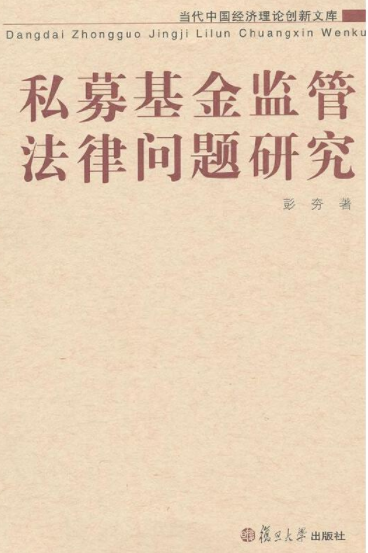 当代中国经济理论创新文库
Dangdai Zhongguo Jingji Lilun Chuangxin Wenku
私募基金监管
法律问题研究
彭夯 著
復旦大學出版社